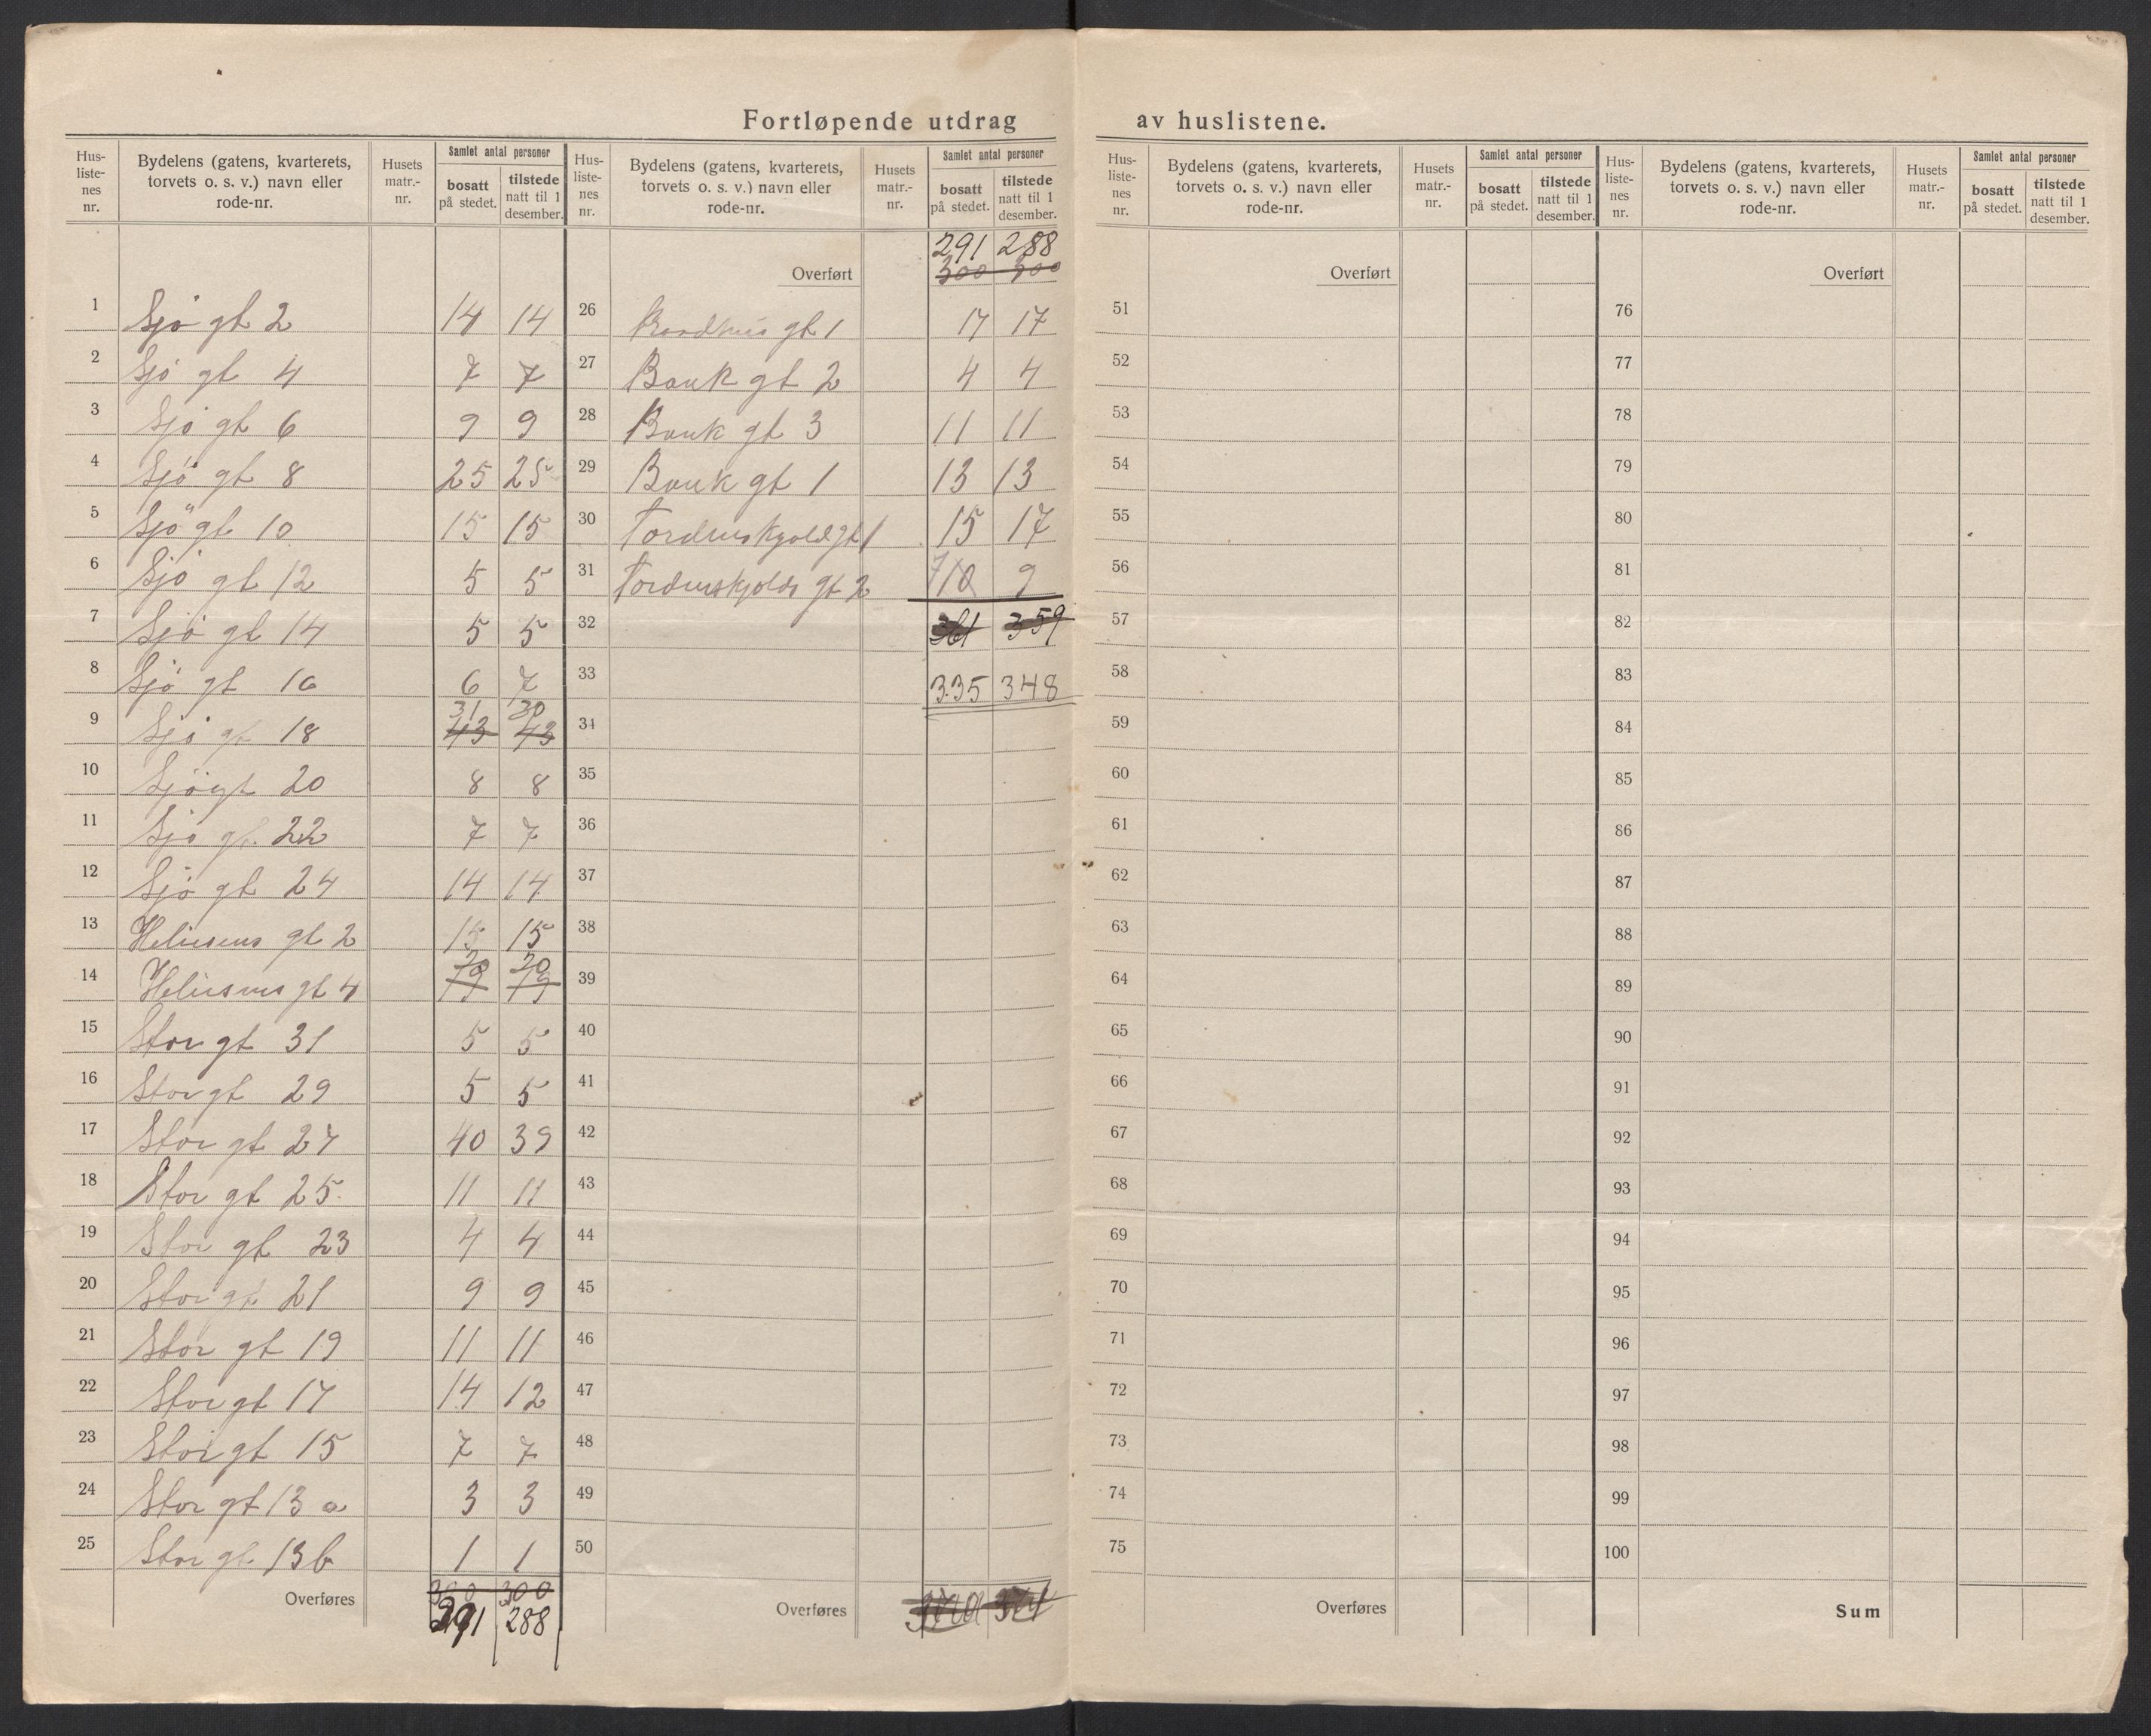 Fortløpende utdrag av huslistene.
Hus-listenes nr. Bydelens (gatens, kvarterets, torvets o. s. v.) navn eller rode-nr. Husets matr.-nr. Samlet antal personer bosatt på stedet. tilstede natt til 1 desember.
1 Sjø gt 2 14 14
2 Sjø gt 4 7 7
3 Sjø gt 6 9 9
4 Sjø gt 8 25 25
5 Sjö gt 10 15 15
6 Sjø gt 12 5 5
7 Sjø gt 14 5 5
8 Sjø gt 16 6 7
9 Sjø gt 18 31 30
43 43
10 Sjøgt 20 8 8
11 Sjø gt. 22 7 7
12 Sjø gt 24 14 14
13 gt 2 15 15
14 gt 4 20 20
19 19
15 Stor gt 31 5 5
16 Stor gt 29 5 5
17 Stor gt 27 40 39
18 Stor gt 25 11 11
19 Stor gt 23 4 4
20 Stor gt 21 9 9
21 Stor gt 19 11 11
22 Stor gt 17 14 12
23 Stor gt 15 7 7
24 Stor gt 13 a 3 3
25 Stor gt 13 b 1 1
Overføres 300 300
291 288
Hus-listenes nr. Bydelens (gatens, kvarterets, torvets o. s. v.) navn eller rode-nr. Husets matr.-nr. Samlet antal personer bosatt på stedet. tilstede natt til 1 desember.
291 288
Overført 300 300
26 gt 1 17 17
27 Bank gt 2 4 4
28 Bank gt 3 11 11
29 Bank gt 1 13 13
30 Tordenskjold gt 1 15 17
31 Tordenskjolds gt 2 7 10 9
32 361 359
33 335 348
34
35
36
37
38
39
40
41
42
43
44
45
46
47
48
49
50
Overføres
Hus-listenes nr. Bydelens (gatens, kvarterets, torvets o. s. v.) navn eller rode-nr. Husets matr.-nr. Samlet antal personer bosatt på stedet. tilstede natt til 1 desember.
Overført
51
52
53
54
55
56
57
58
59
60
61
62
63
64
65
66
67
68
69
70
71
72
73
74
75
Overføres
Hus-listenes nr. Bydelens (gatens, kvarterets, torvets o. s. v.) navn eller rode-nr. Husets matr.-nr. Samlet antal personer bosatt på stedet. tilstede natt til 1 desember.
Overført
76
77
78
79
80
81
82
83
84
85
86
87
88
89
90
91
92
93
94
95
96
97
98
99
100
Sum